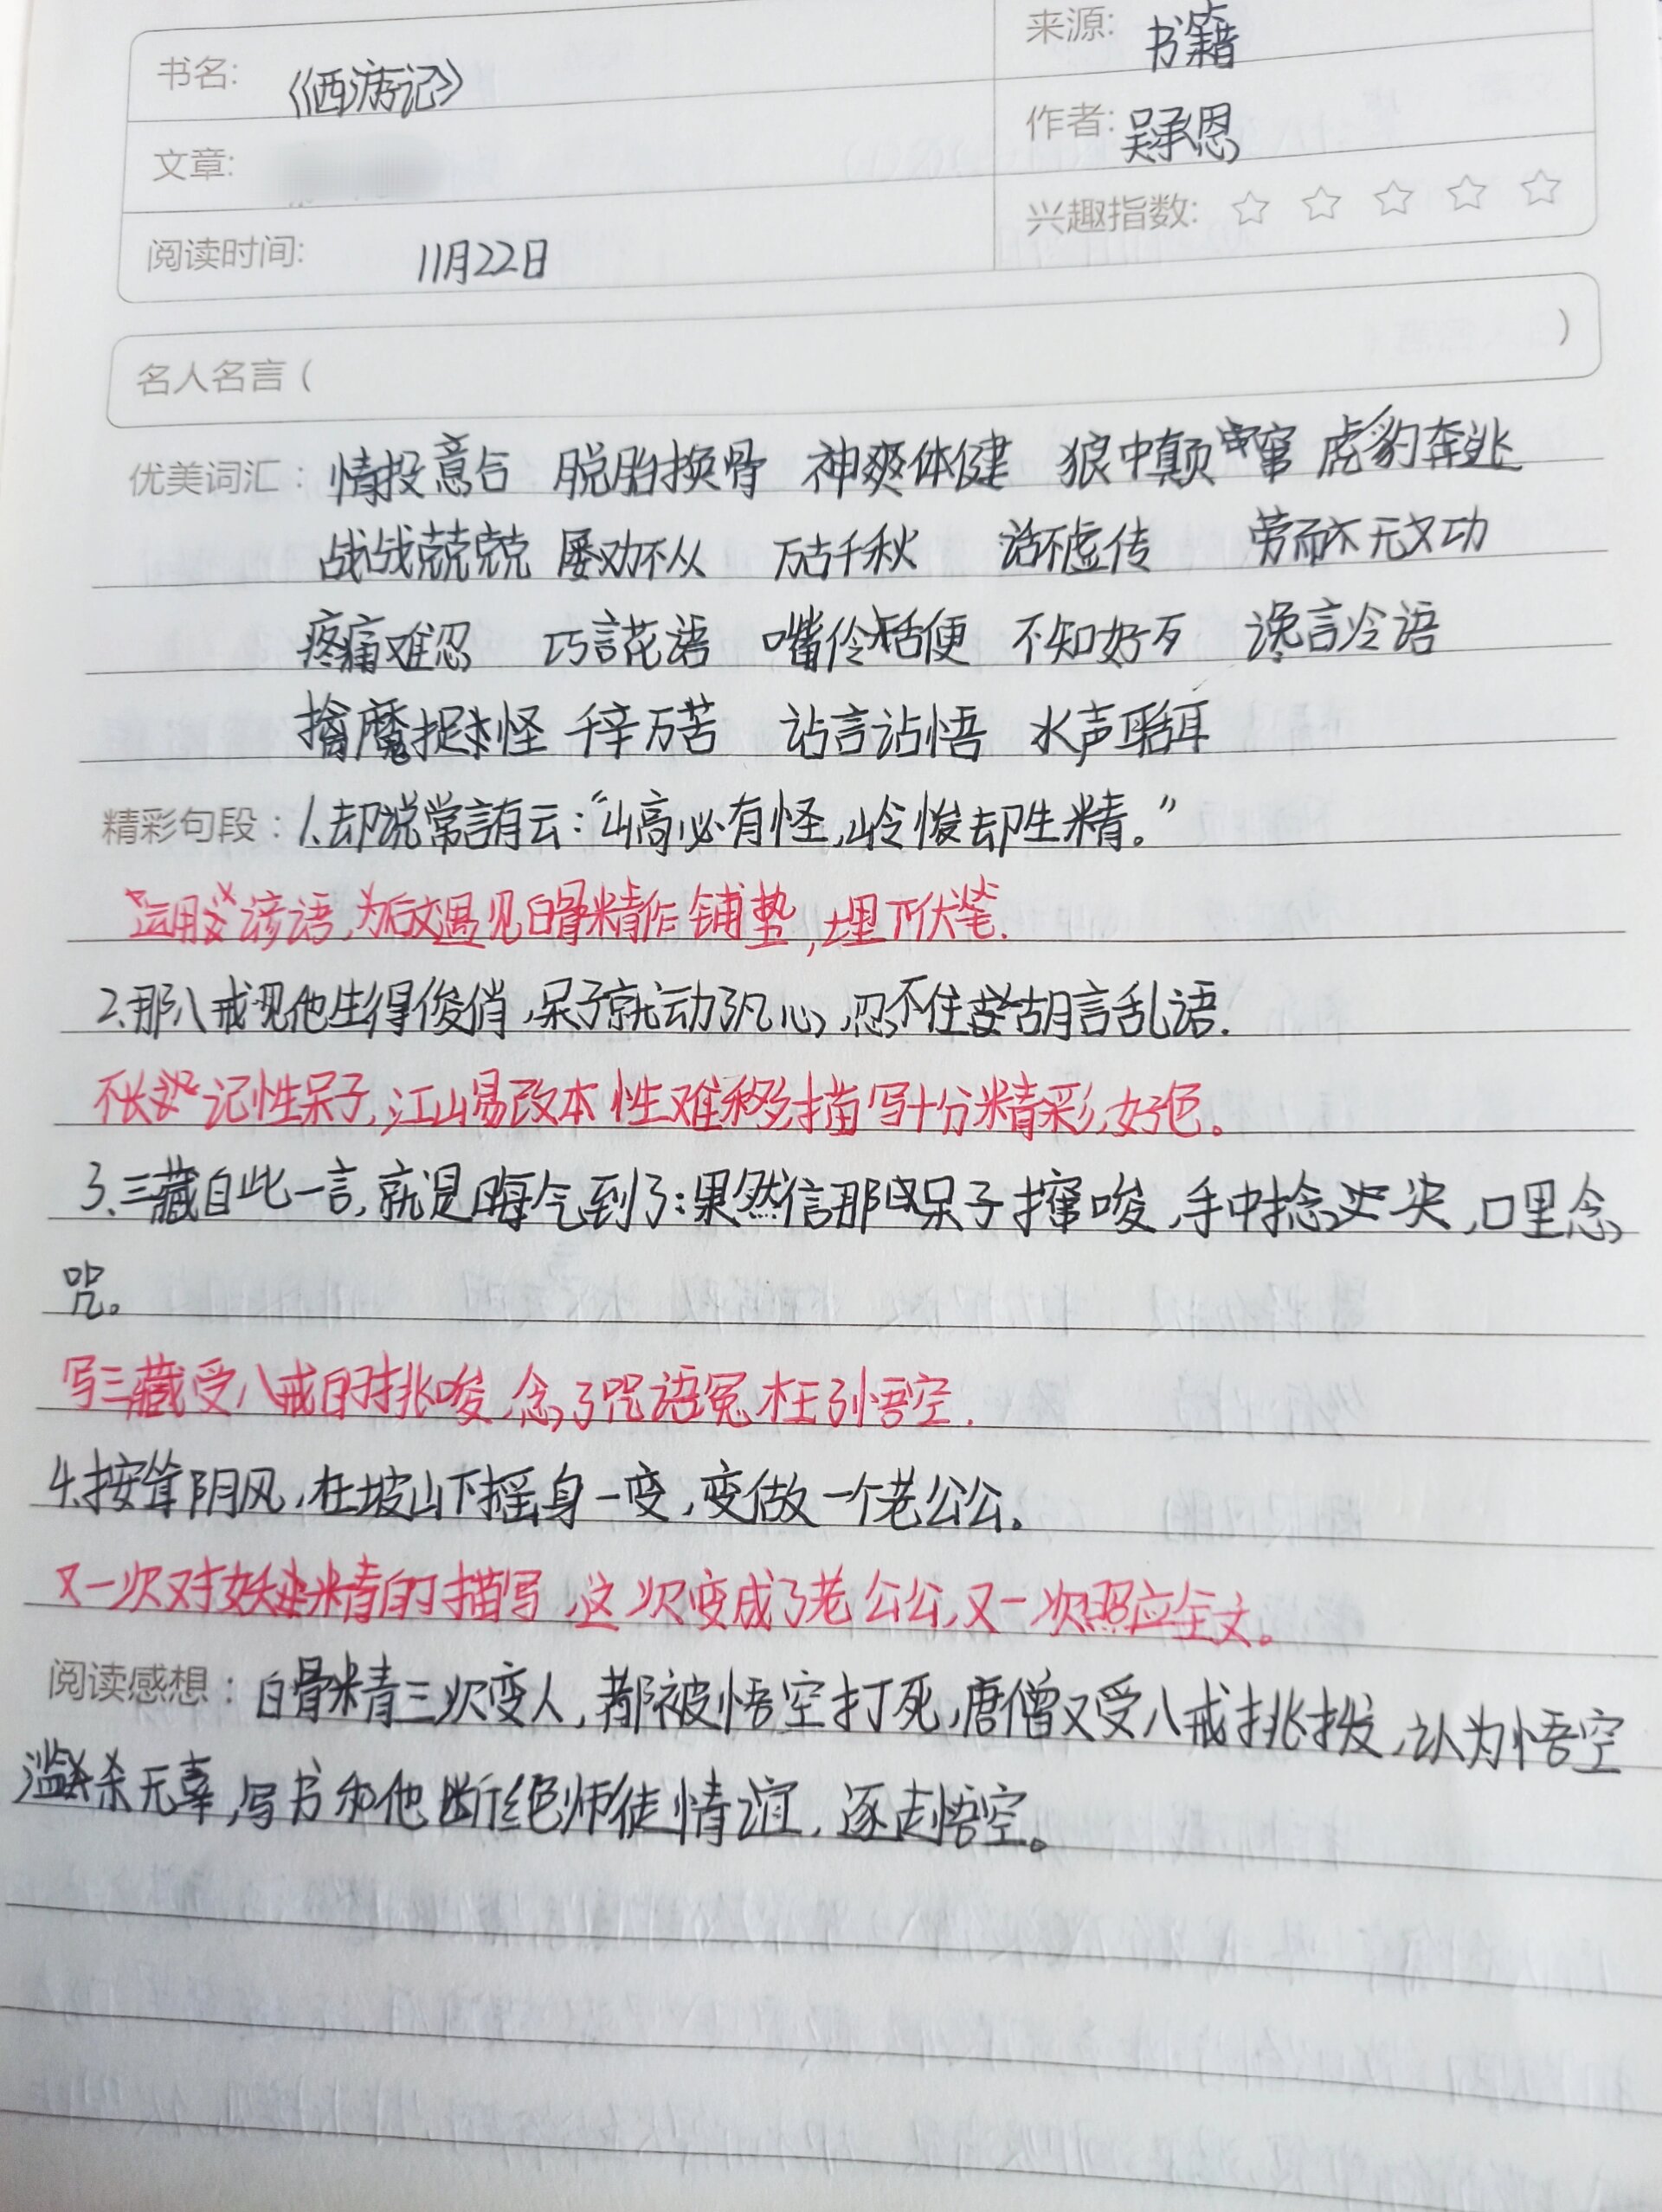 来源: 书籍
书名: 《西游记》
作者: 吴承恩
文章:
兴趣指数: ☆ ☆ ☆ ☆ ☆
阅读时间: 11月22日
名人名言 ( )
优美词汇: 情投意合 脱胎换骨 神爽体健 狼中颠窜 虎豹奔逃
战战兢兢 屡劝不从 万古千秋 话不虚传 劳而无功
疼痛难忍 巧言花语 嘴伶舌便 不知好歹 谗言冷语
擒魔捉怪 千辛万苦 讪言讪语 水声聒耳
精彩句段: 1、却说常言有云:“山高必有怪,岭峻却生精。”
运用谚语,为后文遇见白骨精作铺垫,埋下伏笔.
2、那八戒见他生得俊俏,呆子就动了凡心,忍不住胡言乱语.
不长记性呆子,江山易改本性难移,描写十分精彩,好色。
3、三藏自此一言,就是晦气到了:果然信那呆子撺唆,手中捻诀,口里念
咒。
写三藏受八戒的挑唆,念了咒语冤枉了孙悟空.
4.按耸阴风,在坡山下摇身一变,变做一个老公公。
又一次对妖精的描写,这次变成了老公公,又一次照应全文。
阅读感想: 白骨精三次变人,都被悟空打死,唐僧又受八戒挑拨,认为悟空
滥杀无辜,写书和他断绝师徒情谊,逐走悟空。